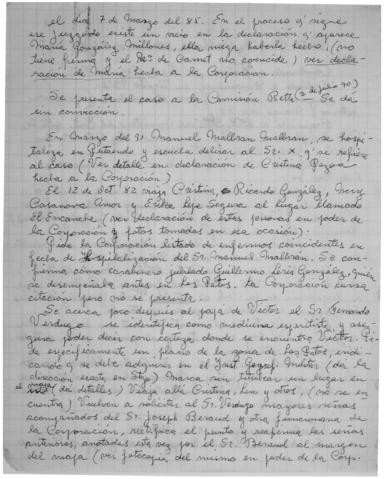 el día 7 de Marzo del 85. En el proceso q' sigue
ese juzgado existe un vicio en la declaración q' aparece
María González Millones, ella niega haberla hecho, (no
tiene firma y el No. de Carnet no coincide) ver decla-
ración de María hecha a la Corporación.
Se presenta el caso a la Comisión Rettig (3 de julio 90) Se dá
con convicción.
En Marzo del 91 Manuel Malbran Malbran, se hospi-
taliza en Putaendo y escucha delirar al Sr. X, q' se refiere
al caso (Ver detalle en declaración de Cristina
hecha a la Corporación)
El 12 de Oct 92 viaja Cristina, Ricardo González, Mery
Casanova Amor y Erika Lepe Segura al lugar llamado
El Encanche (ver declaración de estas personas en poder de
la Corporación y fotos tomadas en esa ocasión).
Pide la Corporación listado de enfermos coincidentes en
fecha de Hospitalización del Sr. Manuel Malbran. Se con-
firma como carabinero jubilado Guillermo González, quien
se desempeñaba antes en Los Patos. La Corporación cursa
citación pero no se presenta.
Se acerca poco después al papá de Victor el Sr. Fernando
Verdugo se identifica como medium espiritista y ase-
gura poder decir con certeza donde se encuentra Victor. Pi-
de específicamente un plano de la zona de Los Patos, indi-
cando q' se debe adquirir en el Inst. Geograf. Militar (da la
dirección exacta en Stgo) Marca sin titubear un lugar en
el mapa (ver detalles) Viaja allí Cristina, Leo y otros, (no se en-
cuentra) Vuelven a solicitar al Sr. Verdugo mayores señas
acompañados del Sr. Joseph Beraud y otra funcionaria de
la Corporación, rectifica el punto y reafirma las señas
anteriores, anotadas esta vez por el Sr. Beraud al margen
del mapa (ver fotocopia del mismo en poder de la Corp.